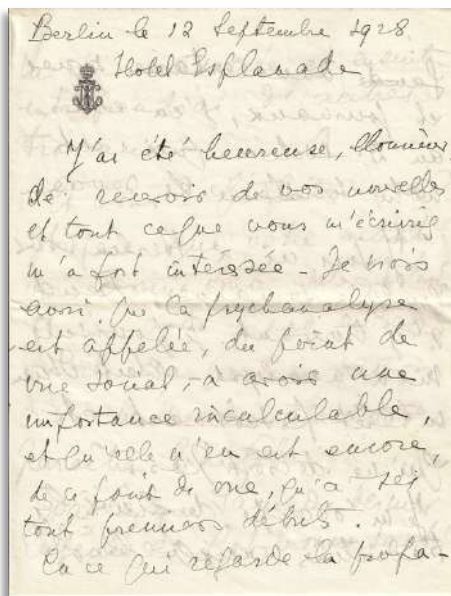 Berlin le 12 Septembre 1928
Hotel Esplanade
J'ai été heureuse, Monsieur,
de recevoir de vos nouvelles
et tout ce que vous m'écrivez
m'a fort intéressée - Je crois
aussi que la psychanalyse
est appelée, du point de
vue social, à avoir une
importance incalculable,
et qu'elle n'en est encore,
de ce point de vue, qu'à ses
tout premiers débuts.
En ce qui regarde la propa-